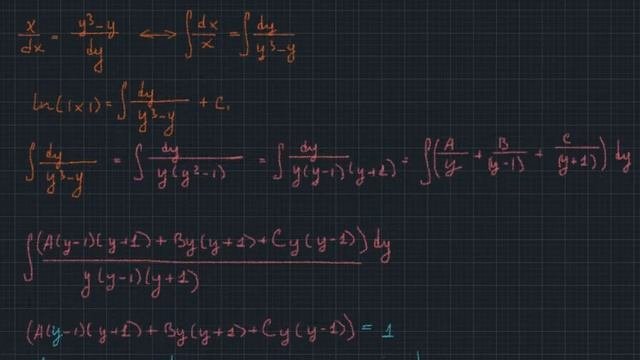 x/dx = y³-y/dy ⟷ ∫ dx/x = ∫ dy/y³-y
ln(|x|) = ∫ dy/y³-y + C₁
∫ dy/y³-y = ∫ dy/y(y²-1) = ∫ dy/y(y-1)(y+1) = ∫(A/y + B/(y-1) + C/(y+1)) dy
∫ (A(y-1)(y+1) + By(y+1) + Cy(y-1))/y(y-1)(y+1) dy
(A(y-1)(y+1) + By(y+1) + Cy(y-1)) = 1